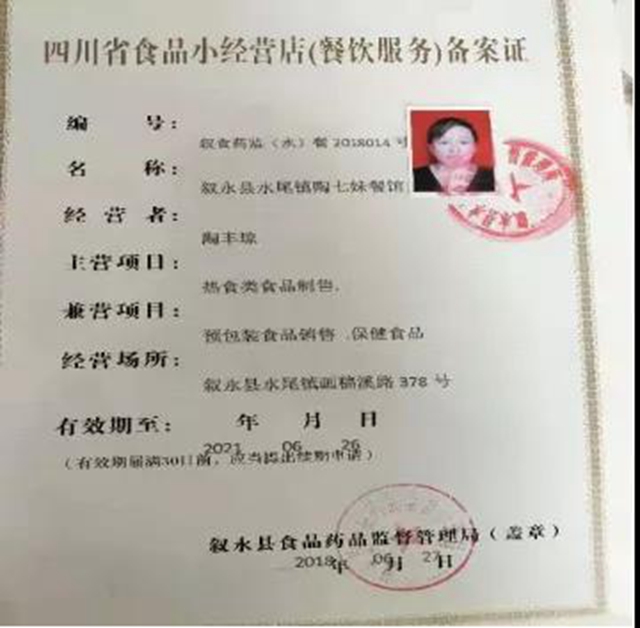 四川省食品小经营店(餐饮服务)备案证
编 号：
叙食药监（水）餐 2018014 号
名 称：
叙永县水尾镇陶七妹餐馆
经 营 者：
陶丰琼
主营项目：
热食类食品制售.
兼营项目：
预包装食品销售 .保健食品
经营场所：
叙永县水尾镇画稿溪路 378 号
有效期至： 年 月 日
2021 06 26
（有效期届满30日前，应当提出续期申请）
叙永县食品药品监督管理局（盖章）
2018年 06月 27日